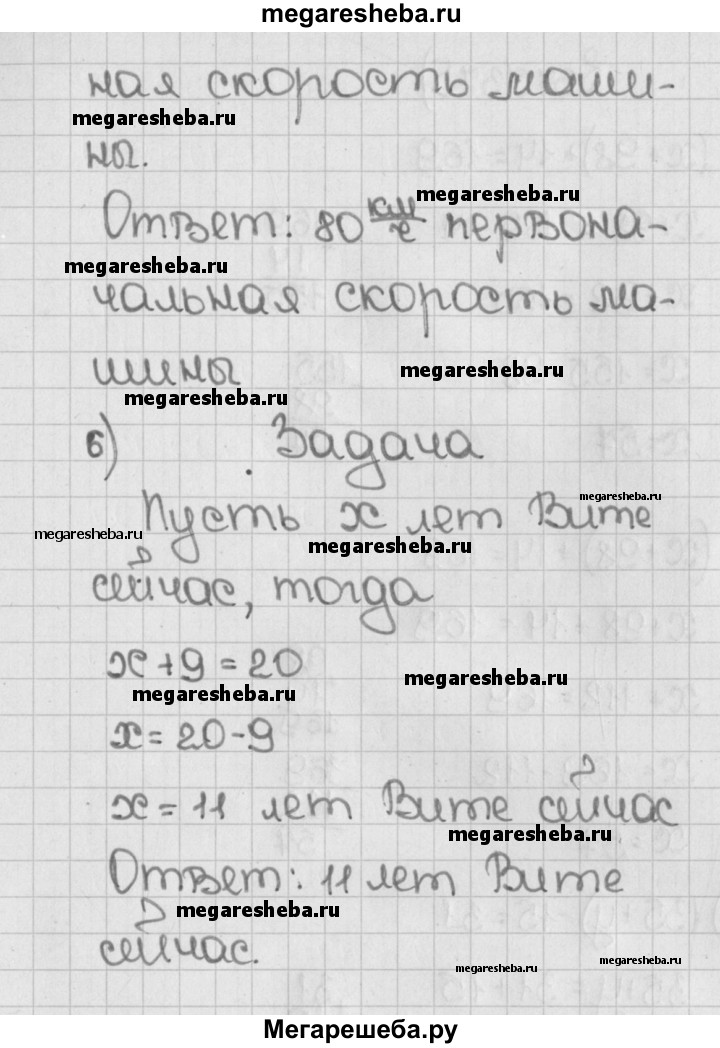 megaresheba.ru
ная скорость маши-
megaresheba.ru
ны.
megaresheba.ru
Ответ: 80 км/ч первона-
megaresheba.ru
чальная скорость ма-
megaresheba.ru
шины
megaresheba.ru
б) Задача
megaresheba.ru
Пусть x лет Вите
megaresheba.ru
megaresheba.ru
сейчас, тогда
x + 9 = 20
megaresheba.ru
megaresheba.ru
x = 20 - 9
x = 11 лет Вите сейчас
megaresheba.ru
Ответ: 11 лет Вите
megaresheba.ru
сейчас.
megaresheba.ru
megaresheba.ru
Мегарешеба.ру